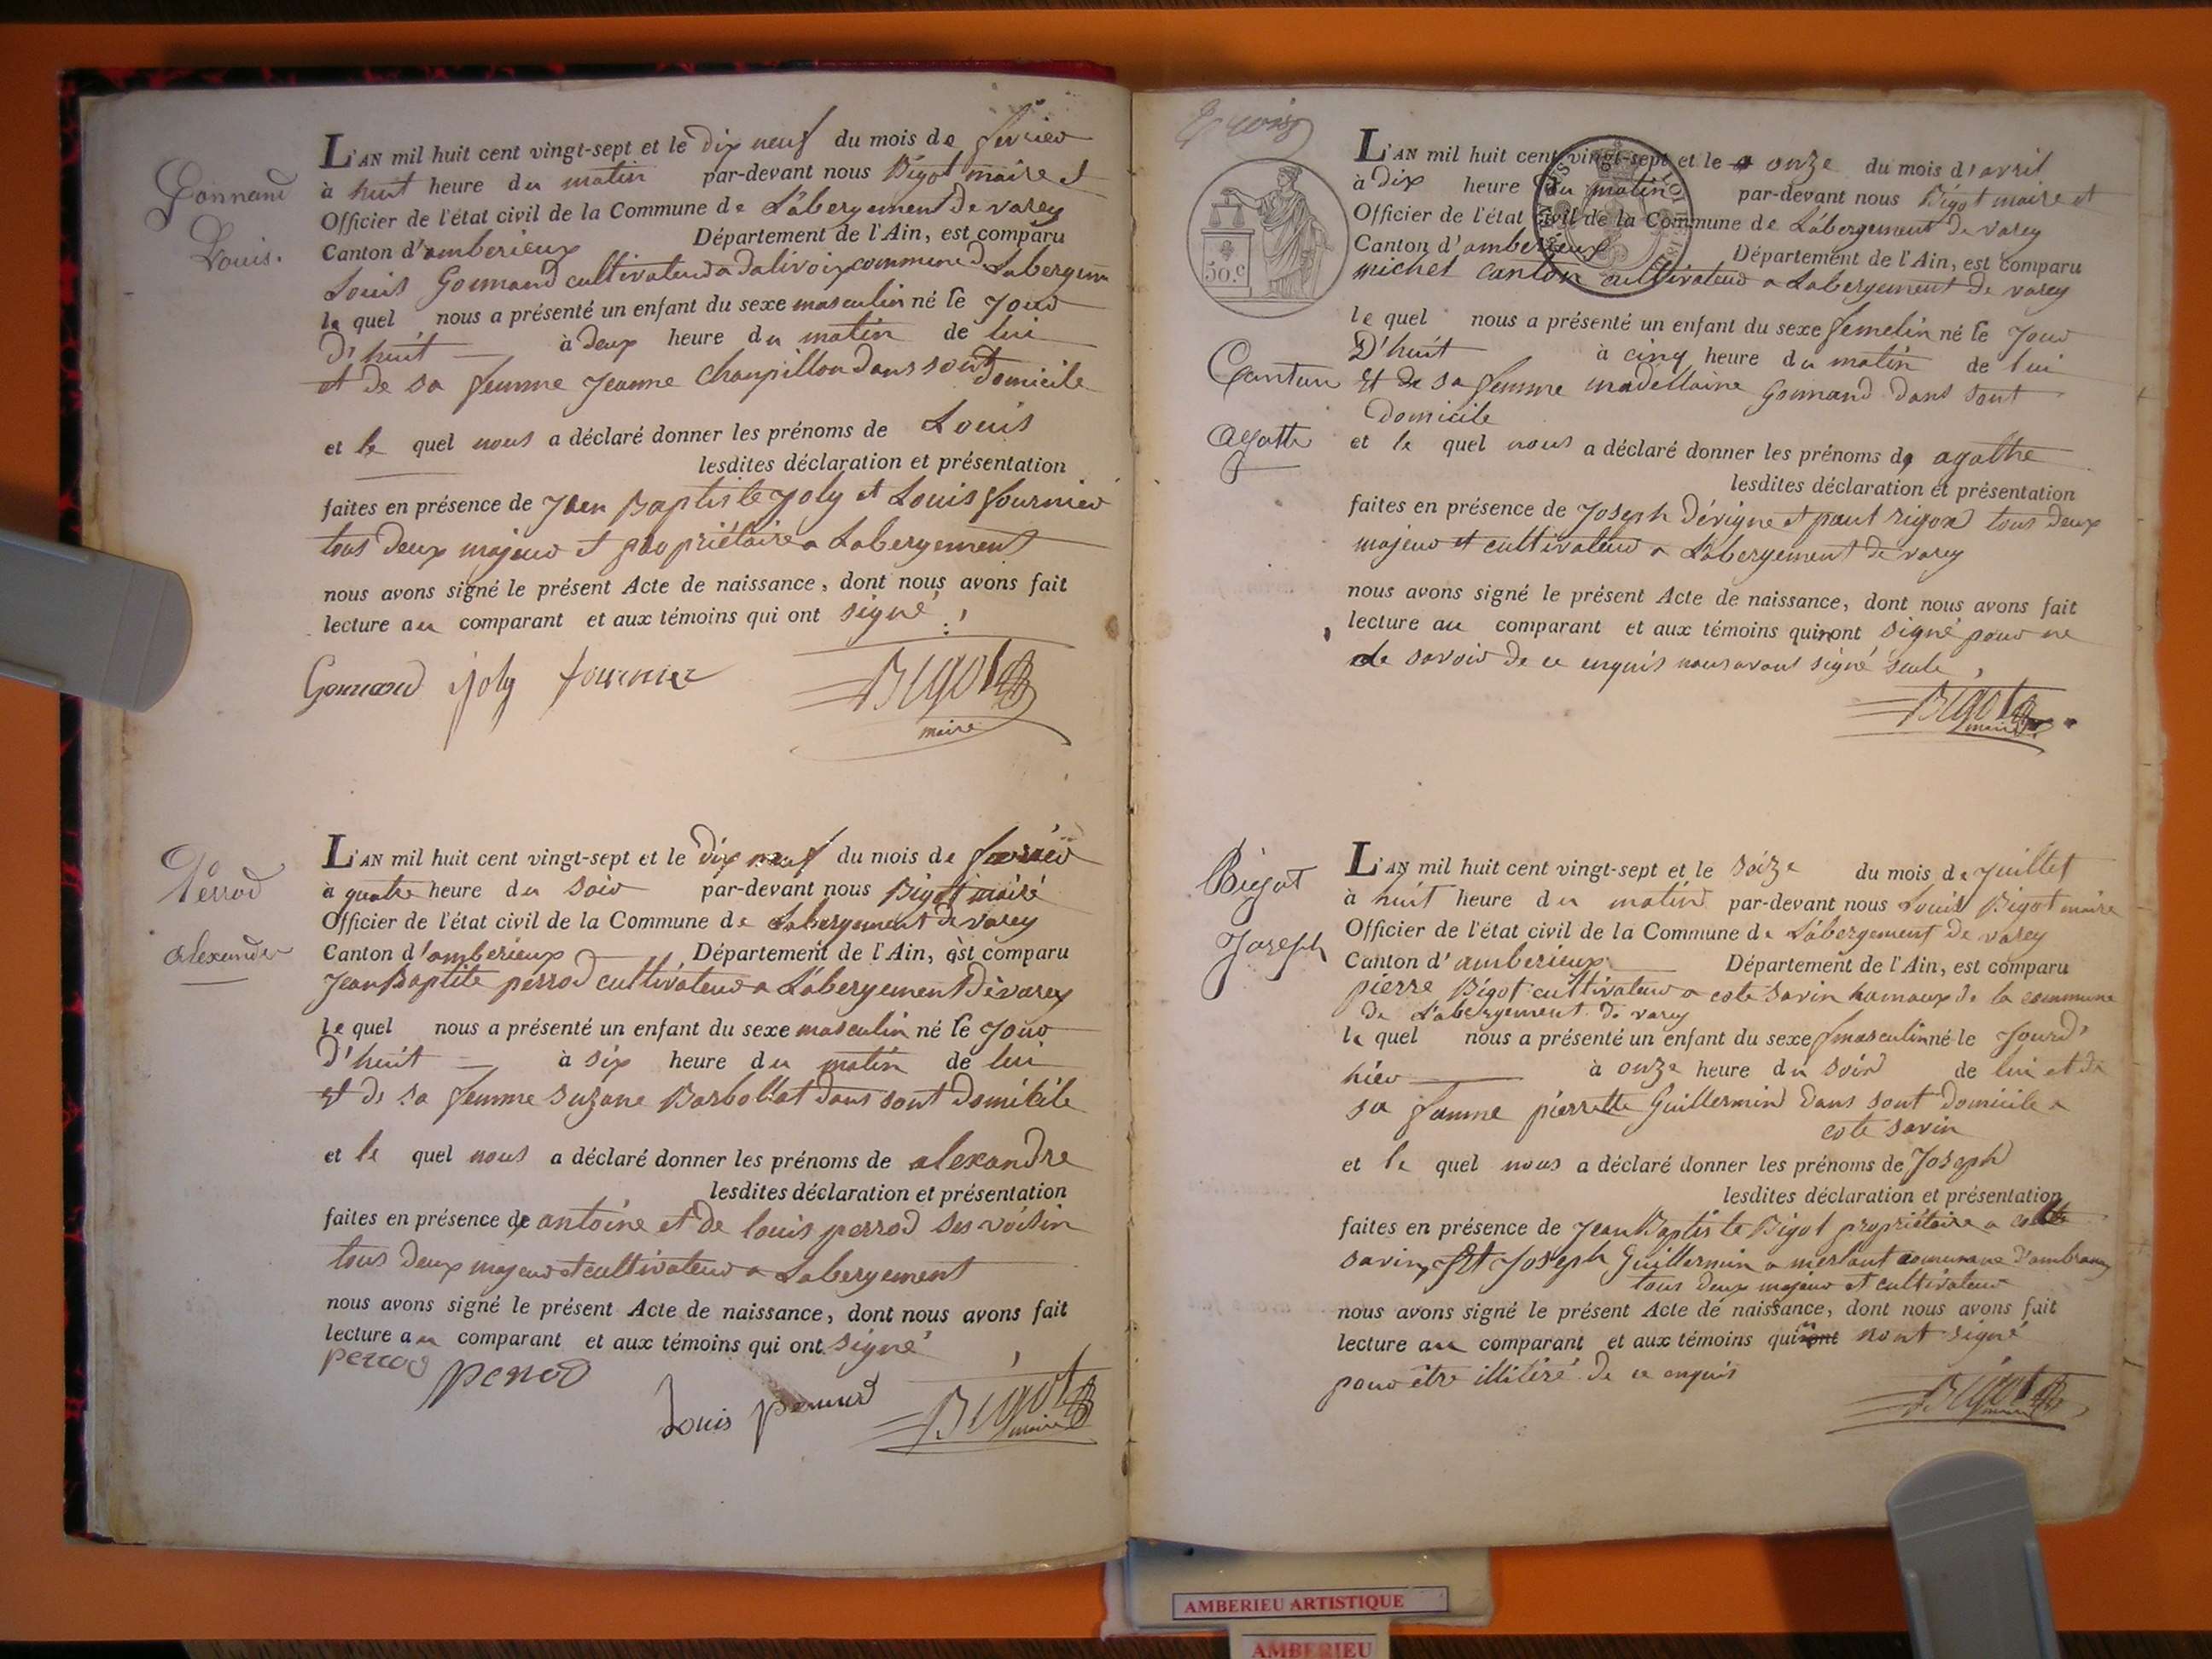 Gonnand
Louis.
L'AN mil huit cent vingt-sept et le dix neuf du mois de fevrier
à huit heure du matin par-devant nous Bigot maire et
Officier de l'état civil de la Commune de L'abergement de varey
Canton d'amberieux Département de l'Ain, est comparu
Louis Gonnand cultivateur a dalivoix commune de Labergement
le quel nous a présenté un enfant du sexe masculin né le Jour
D'huit à deux heure du matin de lui
et de sa femme Jeanne Champillon dans sont domicile
et le quel nous a déclaré donner les prénoms de Louis
lesdites déclaration et présentation
faites en présence de Jean Baptiste Joly et Louis fournier
tous deux majeur et propriétaire a Labergement
nous avons signé le présent Acte de naissance, dont nous avons fait
lecture au comparant et aux témoins qui ont signé
Gonnand joly fournier Bigot
maire
Perrod
alexandre
L'AN mil huit cent vingt-sept et le dix neuf du mois de fevrier
à quatre heure du soir par-devant nous Bigot maire
Officier de l'état civil de la Commune de Labergement de varey
Canton d'amberieux Département de l'Ain, est comparu
Jean Baptite perrod cultivateur a L'abergement de varey
le quel nous a présenté un enfant du sexe masculin né le Jour
D'huit à six heure du matin de lui
et de sa femme suzane Barbollat dans sont domicile
et le quel nous a déclaré donner les prénoms de alexandre
lesdites déclaration et présentation
faites en présence de antoine et de louis perrod ses voisin
tous deux majeur et cultivateur a Labergement
nous avons signé le présent Acte de naissance, dont nous avons fait
lecture au comparant et aux témoins qui ont signé
perrod perrod
Louis perrod Bigot
maire
trois
50.c
Canton
agathe
L'AN mil huit cent vingt-sept et le onze du mois d'avril
à dix heure du matin par-devant nous Bigot maire et
Officier de l'état civil de la Commune de L'abergement de varey
Canton d'amberieux Département de l'Ain, est comparu
michel canton cultivateur a Labergement de varey
le quel nous a présenté un enfant du sexe femelin né le Jour
D'huit à cinq heure du matin de lui
Et de sa femme madellaine Gonnand dans sont
domicile
et le quel nous a déclaré donner les prénoms de agathe
lesdites déclaration et présentation
faites en présence de Joseph dévigne et paul rigod tous deux
majeur et cultivateur a L'abergement de varey
nous avons signé le présent Acte de naissance, dont nous avons fait
lecture au comparant et aux témoins qui n'ont signé pour ne
le savoir de ce enquis nous avons signé seule
Bigot
maire
Bigot
Joseph
L'AN mil huit cent vingt-sept et le seize du mois de Juillet
à huit heure du matin par-devant nous Louis Bigot maire
Officier de l'état civil de la Commune de L'abergement de varey
Canton d'amberieux Département de l'Ain, est comparu
pierre Bigot cultivateur a cote savin hamaux de la commune
de L'abergement de varey
le quel nous a présenté un enfant du sexe masculin né le Jourd'
hier à onze heure du soir de lui et de
sa femme pierrette Guillermin dans sont domicile a
cote savin
et le quel nous a déclaré donner les prénoms de Joseph
lesdites déclaration et présentation
faites en présence de Jean Baptiste Bigot propriétaire a cotte
savin, Et Joseph Guillermin a merlant commune d'ambronay
tous deux majeur et cultivateur
nous avons signé le présent Acte de naissance, dont nous avons fait
lecture au comparant et aux témoins qui nont signé
pour être illitéré de ce enquis
Bigot
maire
AMBERIEU ARTISTIQUE
AMBERIEU